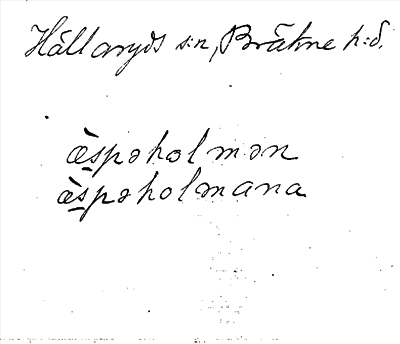 Hällaryds s:n, Bräkne h:d.
æ̀s̲pəholmən
æ̀s̲pəholmana